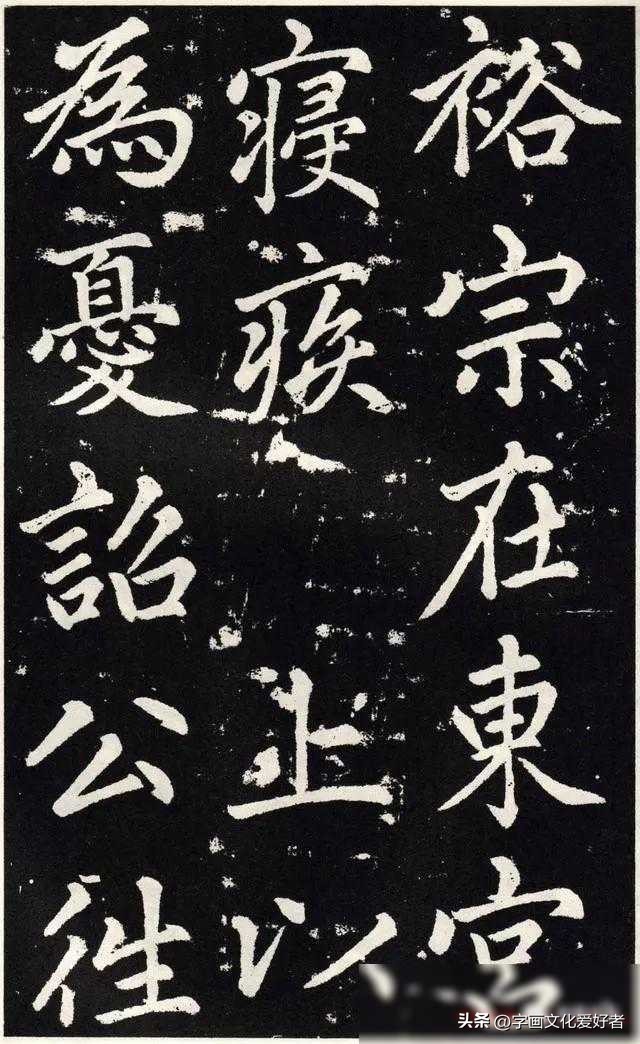 裕宗在東宮
寢疾 上以
為憂詔公往
头条 @字画文化爱好者